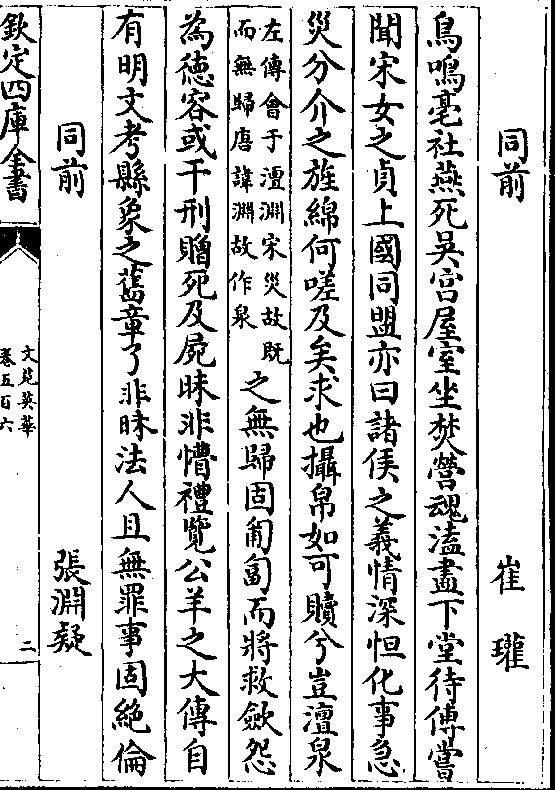 同前 崔瓘
鳥鳴亳社燕死吳宫屋室坐焚營魂溘盡下堂待傅嘗
聞宋女之貞上國同盟亦曰諸侯之義情深怛化事急
災分介之旌綿何嗟及矣求也攝帛如可贖兮豈澶泉
左傳會于澶淵宋災故既
而無歸唐諱淵故作泉
之無歸固匍匐而將救歛怨
為德容或干刑贈死及屍昧非懵禮覽公羊之大傳自
有明文考縣象之舊章了非昧法人且無罪事固絶倫
同前 張淵凝
欽定四庫全書
文苑英華
卷五百六
二